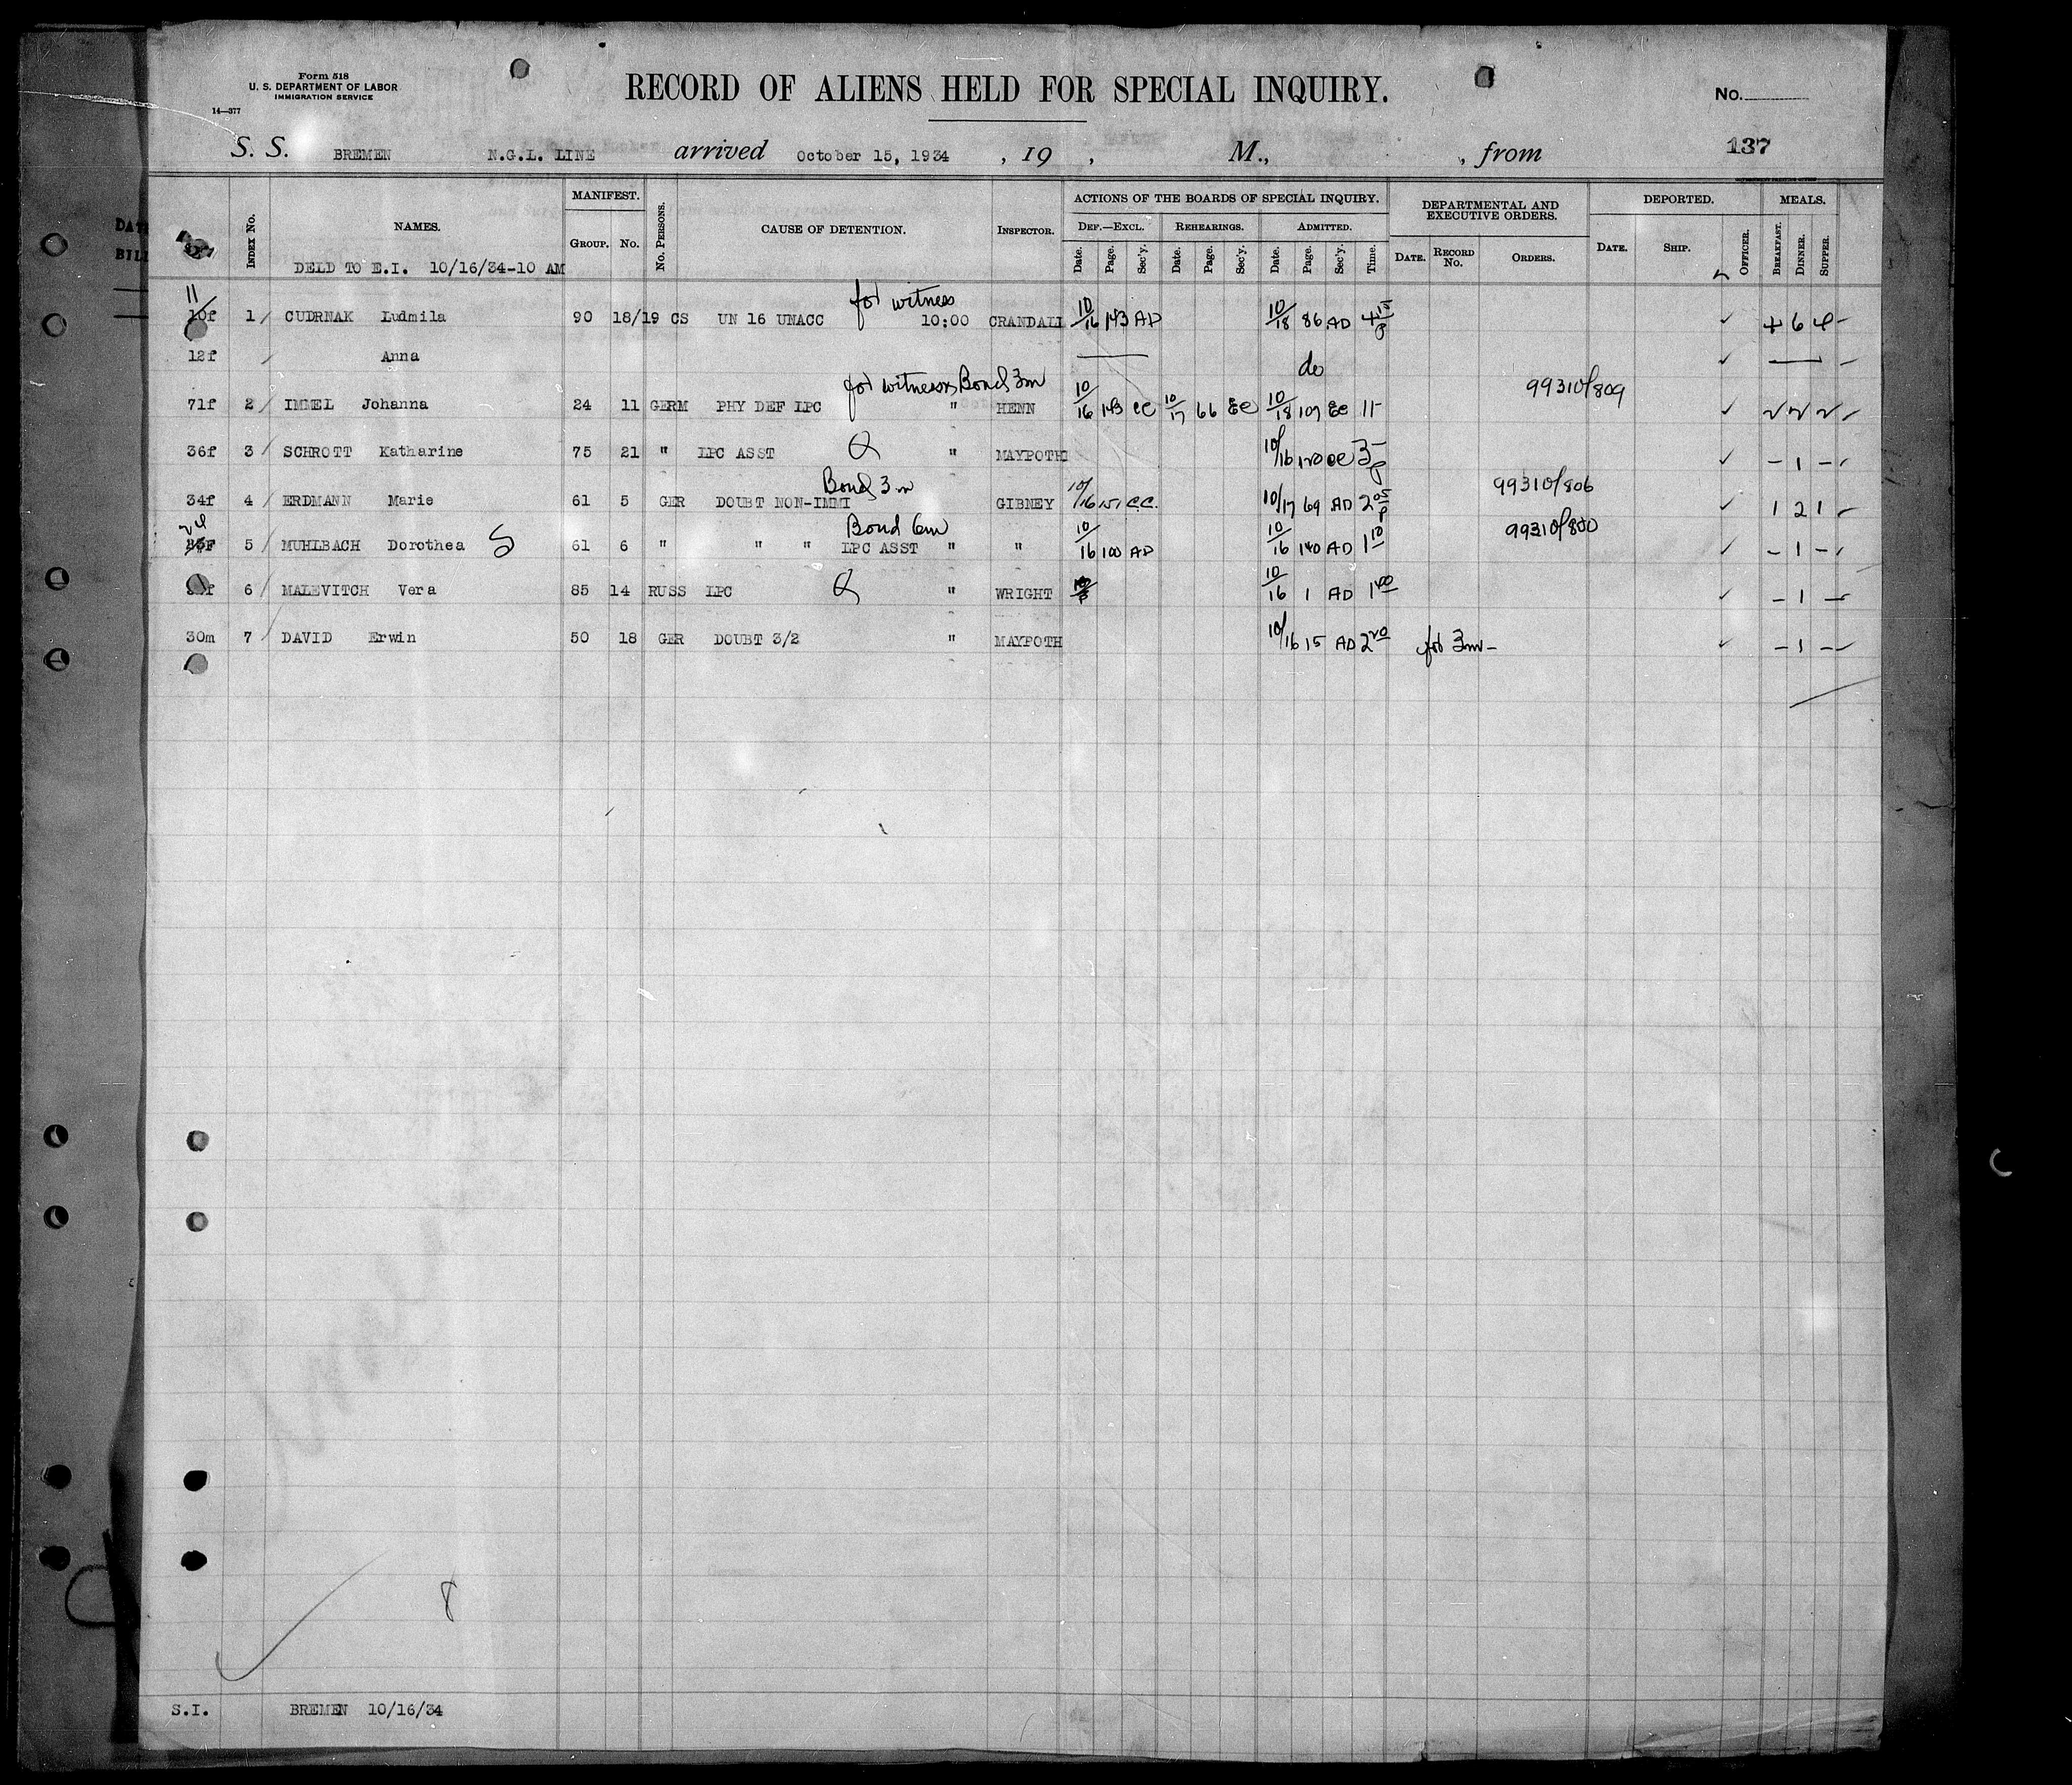 Form 518
U. S. DEPARTMENT OF LABOR
IMMIGRATION SERVICE
14—377
RECORD OF ALIENS HELD FOR SPECIAL INQUIRY.
No.
137
S. S. BREMEN N.G.L. LINE arrived October 15, 1934 , 19 , M., , from
INDEX No. NAMES. MANIFEST. GROUP. No. No. PERSONS. CAUSE OF DETENTION. INSPECTOR. ACTIONS OF THE BOARDS OF SPECIAL INQUIRY. DEPARTMENTAL AND EXECUTIVE ORDERS. DEPORTED. MEALS.
DEF.—EXCL. REHEARINGS. ADMITTED.
Date. Page. Sec'y. Date. Page. Sec'y. Date. Page. Sec'y. Time. DATE. RECORD No. ORDERS. DATE. SHIP. OFFICER. BREAKFAST. DINNER. SUPPER.
DELD TO E.I. 10/16/34-10 AM
11 for witness
10f 1 CUDRNAK Ludmila 90 18/19 CS UN 16 UNACC 10:00 CRANDALL 10/16 143 AD 10/18 86 AD 4 15 p 6
12f Anna do
for witness Bond 3m 99310/809
71f 2 IMMEL Johanna 24 11 GERM PHY DEF LPC " HENN 10/16 143 CC 10/17 66 EC 10/18 109 EC 11-
36f 3 SCHROTT Katharine 75 21 " LPC ASST " MAYPOTH 10/16 120 CC 3- p - 1 -
Bond 3m 99310/806
34f 4 ERDMANN Marie 61 5 GER DOUBT NON-IMMI GIBNEY 10/16 151 C.C. 10/17 69 AD 2 05 p 1 2 1
Bond 6m 99310/800
5 MUHLBACH Dorothea S 61 6 " " " LPC ASST " " 10/16 100 AD 10/16 140 AD 1 10 - 1 -
6 MALEVITCH Vera 85 14 RUSS LPC " WRIGHT 10/16 1 AD 1 40 - 1 -
30m 7 DAVID Erwin 50 18 GER DOUBT 3/2 " MAYPOTH 10/16 15 AD 2 20 for 3m - - 1 -
8
S.I. BREMEN 10/16/34